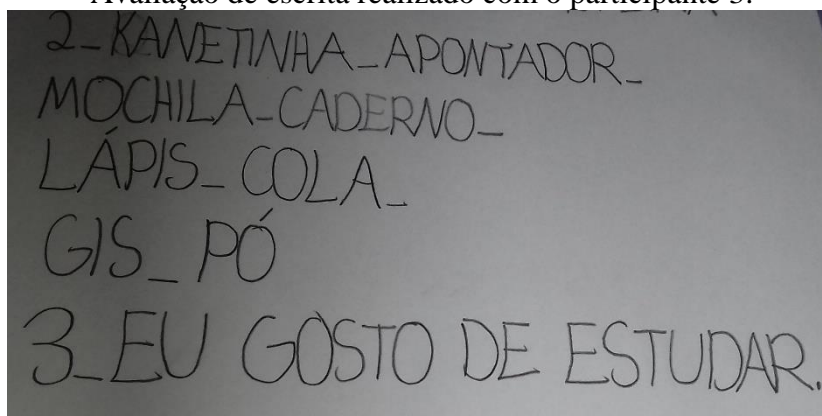 Avaliação de escrita realizado com o participante 3.
2-KANETINHA-APONTADOR-
MOCHILA-CADERNO-
LÁPIS-COLA-
GIS-PÓ
3-EU GOSTO DE ESTUDAR.